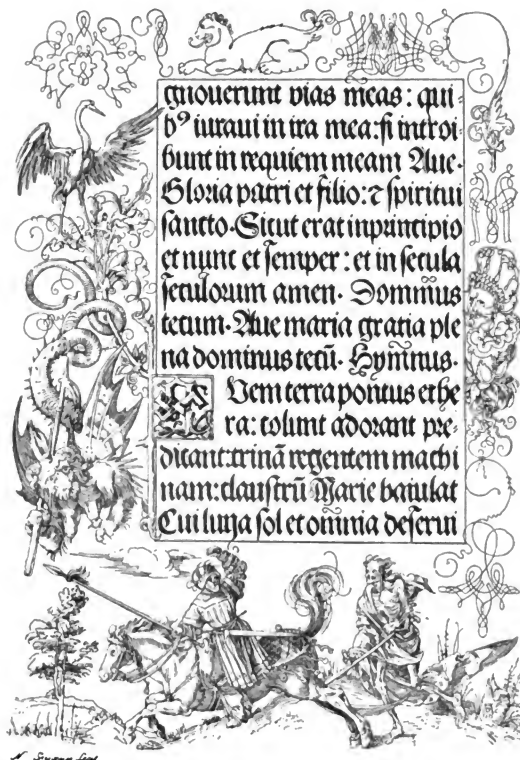 gnouerunt vias meas: qui-
bꝰ iuraui in ira mea: ſi introi-
bunt in requiem meam Aue.
Gloria patri et filio: ⁊ ſpiritui
ſancto. Sicut erat in principio
et nunc et ſemper: et in ſecula
ſeculorum amen. Dominus
tecum. Aue maria gratia ple
na dominus tecū. Hymnus.
QUem terra pontus ethe
ra: colunt adorant pre-
dicant: trinā regentem machi
nam: clauſtrū Marie baiulat
Cui luna ſol et omnia deſerui